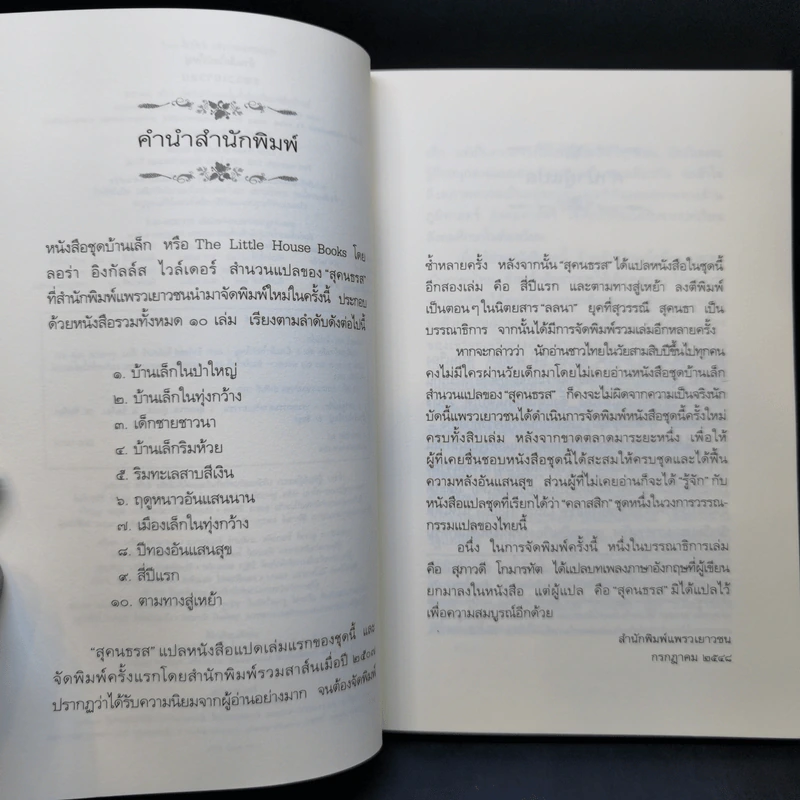 คำนำสำนักพิมพ์
หนังสือชุดบ้านเล็ก หรือ The Little House Books โดย
ลอร่า อิงกัลล์ส ไวล์เดอร์ สำนวนแปลของ “สุคนธรส”
ที่สำนักพิมพ์แพรวเยาวชนนำมาจัดพิมพ์ใหม่ในครั้งนี้ ประกอบ
ด้วยหนังสือรวมทั้งหมด ๑๐ เล่ม เรียงตามลำดับดังต่อไปนี้
๑. บ้านเล็กในป่าใหญ่
๒. บ้านเล็กในทุ่งกว้าง
๓. เด็กชายชาวนา
๔. บ้านเล็กริมห้วย
๕. ริมทะเลสาบสีเงิน
๖. ฤดูหนาวอันแสนนาน
๗. เมืองเล็กในทุ่งกว้าง
๘. ปีทองอันแสนสุข
๙. สี่ปีแรก
๑๐. ตามทางสู่เหย้า
“สุคนธรส” แปลหนังสือแปดเล่มแรกของชุดนี้ และ
จัดพิมพ์ครั้งแรกโดยสำนักพิมพ์รวมสาส์นเมื่อปี
ปรากฏว่าได้รับความนิยมจากผู้อ่านอย่างมาก จนต้องจัดพิมพ์
ซ้ำหลายครั้ง หลังจากนั้น “สุคนธรส” ได้แปลหนังสือในชุดนี้
อีกสองเล่ม คือ สี่ปีแรก และตามทางสู่เหย้า ลงตีพิมพ์
เป็นตอนๆ ในนิตยสาร “ลลนา” ยุคที่สุวรรณี สุคนธา เป็น
บรรณาธิการ จากนั้นได้มีการจัดพิมพ์รวมเล่มอีกหลายครั้ง
หากจะกล่าวว่า นักอ่านชาวไทยในวัยสามสิบปีขึ้นไปทุกคน
คงไม่มีใครผ่านวัยเด็กมาโดยไม่เคยอ่านหนังสือชุดบ้านเล็ก
สำนวนแปลของ “สุคนธรส” ก็คงจะไม่ผิดจากความเป็นจริงนัก
บัดนี้แพรวเยาวชนได้ดำเนินการจัดพิมพ์หนังสือชุดนี้ครั้งใหม่
ครบทั้งสิบเล่ม หลังจากขาดตลาดมาระยะหนึ่ง เพื่อให้
ผู้ที่เคยชื่นชอบหนังสือชุดนี้ได้สะสมให้ครบชุดและได้ฟื้น
ความหลังอันแสนสุข ส่วนผู้ที่ไม่เคยอ่านก็จะได้ “รู้จัก” กับ
หนังสือแปลชุดที่เรียกได้ว่า “คลาสสิก” ชุดหนึ่งในวงการวรรณ-
กรรมแปลของไทยนี้
อนึ่ง ในการจัดพิมพ์ครั้งนี้ หนึ่งในบรรณาธิการเล่ม
คือ สุภาวดี โกมารทัต ได้แปลบทเพลงภาษาอังกฤษที่ผู้เขียน
ยกมาลงในหนังสือ แต่ผู้แปล คือ “สุคนธรส” มิได้แปลไว้
เพื่อความสมบูรณ์อีกด้วย
สำนักพิมพ์แพรวเยาวชน
กรกฎาคม ๒๕๔๘